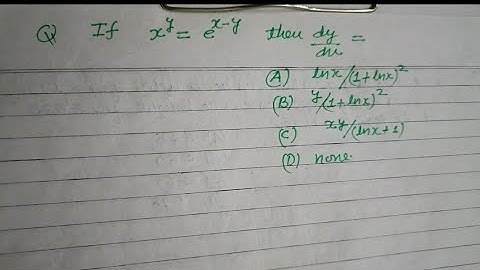 Q If x^y = e^(x-y) then dy/dx =
(A) lnx/(1+lnx)^2
(B) y/(1+lnx)^2
(C) xy/(lnx+1)
(D) none.